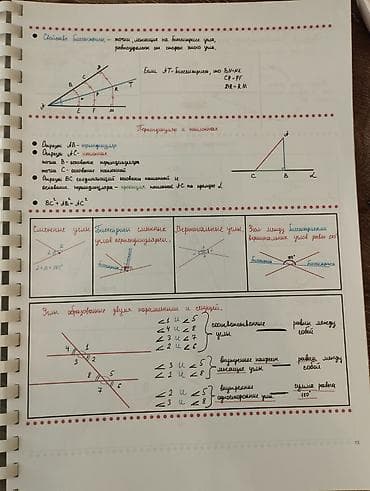 Свойство биссектрисы - точки, лежащие на биссектрисе угла,
равноудалены от сторон этого угла.
Если AT - биссектриса, то BN=KE
CP=PF
DR=RM
Перпендикуляр и наклонная
Отрезок AB - перпендикуляр
Отрезок AC - наклонная
точка B - основание перпендикуляра
точка C - основание наклонной
Отрезок BC, соединяющий основания наклонной и
основание перпендикуляра - проекция наклонной AC на прямую α
BC²+AB²=AC²
Смежные углы
Биссектрисы смежных
углов перпендикулярны.
Вертикальные углы.
Угол между биссектрисами
вертикальных углов равен 180°
Углы, образованные двумя параллельными и секущей.
∠1 и ∠5
∠4 и ∠8
∠3 и ∠7
∠2 и ∠6
соответственные углы
равны между собой
∠3 и ∠5
∠2 и ∠8
внутренние накрест лежащие углы
равны между собой
∠2 и ∠5
∠3 и ∠8
внутренние односторонние углы
сумма равна 180°